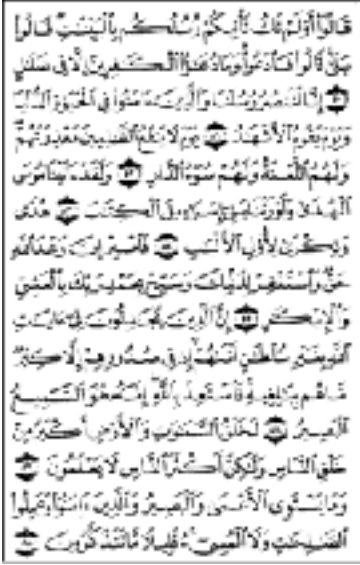 قَالُوٓا۟ أَوَلَمْ تَكُ تَأْتِيكُمْ رُسُلُكُم بِٱلْبَيِّنَٰتِ قَالُوا۟
بَلَىٰ قَالُوا۟ فَٱدْعُوا۟ وَمَا دُعَٰٓؤُا۟ ٱلْكَٰفِرِينَ إِلَّا فِى ضَلَٰلٍ
۝٥٠ إِنَّا لَنَنصُرُ رُسُلَنَا وَٱلَّذِينَ ءَامَنُوا۟ فِى ٱلْحَيَوٰةِ ٱلدُّنْيَا
وَيَوْمَ يَقُومُ ٱلْأَشْهَٰدُ ۝٥١ يَوْمَ لَا يَنفَعُ ٱلظَّٰلِمِينَ مَعْذِرَتُهُمْ
وَلَهُمُ ٱللَّعْنَةُ وَلَهُمْ سُوٓءُ ٱلدَّارِ ۝٥٢ وَلَقَدْ ءَاتَيْنَا مُوسَى
ٱلْهُدَىٰ وَأَوْرَثْنَا بَنِىٓ إِسْرَٰٓءِيلَ ٱلْكِتَٰبَ ۝٥٣ هُدًى
وَذِكْرَىٰ لِأُو۟لِى ٱلْأَلْبَٰبِ ۝٥٤ فَٱصْبِرْ إِنَّ وَعْدَ ٱللَّهِ
حَقٌّ وَٱسْتَغْفِرْ لِذَنۢبِكَ وَسَبِّحْ بِحَمْدِ رَبِّكَ بِٱلْعَشِىِّ
وَٱلْإِبْكَٰرِ ۝٥٥ إِنَّ ٱلَّذِينَ يُجَٰدِلُونَ فِىٓ ءَايَٰتِ
ٱللَّهِ بِغَيْرِ سُلْطَٰنٍ أَتَىٰهُمْ إِن فِى صُدُورِهِمْ إِلَّا كِبْرٌ
مَّا هُم بِبَٰلِغِيهِ فَٱسْتَعِذْ بِٱللَّهِ إِنَّهُۥ هُوَ ٱلسَّمِيعُ
ٱلْبَصِيرُ ۝٥٦ لَخَلْقُ ٱلسَّمَٰوَٰتِ وَٱلْأَرْضِ أَكْبَرُ مِنْ
خَلْقِ ٱلنَّاسِ وَلَٰكِنَّ أَكْثَرَ ٱلنَّاسِ لَا يَعْلَمُونَ ۝٥٧
وَمَا يَسْتَوِى ٱلْأَعْمَىٰ وَٱلْبَصِيرُ وَٱلَّذِينَ ءَامَنُوا۟ وَعَمِلُوا۟
ٱلصَّٰلِحَٰتِ وَلَا ٱلْمُسِىٓءُ قَلِيلًا مَّا تَتَذَكَّرُونَ ۝٥٨